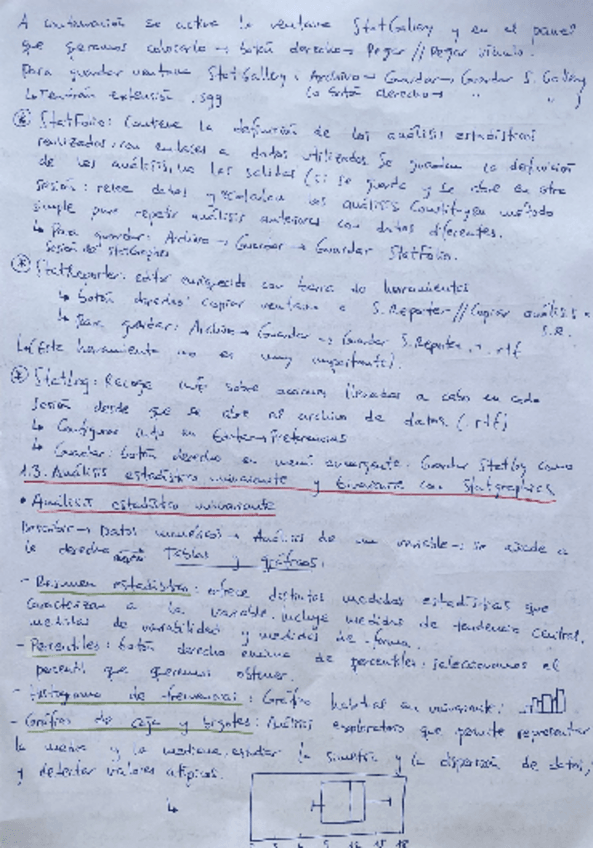 A continuación se activa la ventana StatGallery y en el panel
que queremos colocarlo → botón derecho → Pegar // Pegar vínculo.
Para guardar ventana StatGallery: Archivo → Guardar → Guardar S. Gallery
↳ Tendrán extensión .sgg ↳ botón derecho → " "
* StatFolio: Contiene la definición de los análisis estadísticos
realizados con enlaces a datos utilizados. Se guardan la definición
de los análisis, no las salidas (si se guarda y se abre en otra
sesión: relee datos y recalcula los análisis. Constituyen método
simple para repetir análisis anteriores con datos diferentes.
↳ Para guardar: Archivo → Guardar → Guardar StatFolio.
Sesión de Statgraphics
* StatReporter: editor enriquecido con barra de herramientas
↳ Botón derecho: copiar ventana a S.Reporter // Copiar análisis a
S.R.
↳ Para guardar: Archivo → Guardar → Guardar S.Reporter. .rtf
↳ (Esta herramienta no es muy importante).
* StatLog: Recoge info sobre acciones llevadas a cabo en cada
sesión desde que se abre archivo de datos. (.rtf)
↳ Configurar info en Preferencias
↳ Guardar: botón derecho en menú emergente. Guardar StatLog como
1.3. Análisis estadístico univariante y bivariante con Statgraphics
• Análisis estadístico univariante
Describir → Datos numéricos → Análisis de una variable → se añade a
la derecha Tablas y gráficos.
- Resumen estadístico: ofrece distintas medidas estadísticas que
caracterizan a la variable. incluye medidas de tendencia central,
medidas de variabilidad y medidas de forma.
- Percentiles: botón derecho encima de percentiles: seleccionamos el
percentil que queremos obtener.
- Histograma de frecuencias: Gráfico habitual en univariante:
- Gráfico de caja y bigotes: Análisis exploratorio que permite representar
la media y la mediana, estudiar la simetría y la dispersión de datos,
y detectar valores atípicos.
↳